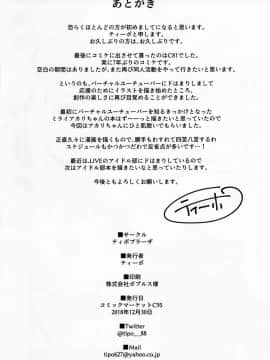 あとがき
恐らくほとんどの方が初めましてになると思います。
ティーポと申します。
お久しぶりの方は、お久しぶりです。
最後にコミケに出させて貰ったのはC81でした。
実に7年ぶりのコミケです。
空白の期間はありましたが、また再び同人活動をやって行きたいと思います。
というのも、バーチャルユーチューバーにドはまりしまして
応援のためにイラストを描き始めたところ、
創作の楽しさに再び目覚めることができました。
最初にバーチャルユーチューバーを知るきっかけとなった
ミライアカリちゃんの本はずーーっと描きたいと思っていたので
今回はアカリちゃんにひと肌脱いでもらいました。
正直久々に漫画を描くもので、勝手もわすれてて四苦八苦するわ
スケジュールもかつかつだわで反省点が多いです…！
最近は.LIVEのアイドル部にドはまりしているので
次はアイドル部本を描きたいなと思っていたりします。
今後ともよろしくお願いします。
ティーポ
■サークル
ティポプラーザ
■発行者
ティーポ
■印刷
株式会社ポプルス様
■発行日
コミックマーケットC95
2018年12月30日
■Twitter
@tipo__88
■Mail
tipo627@yahoo.co.jp